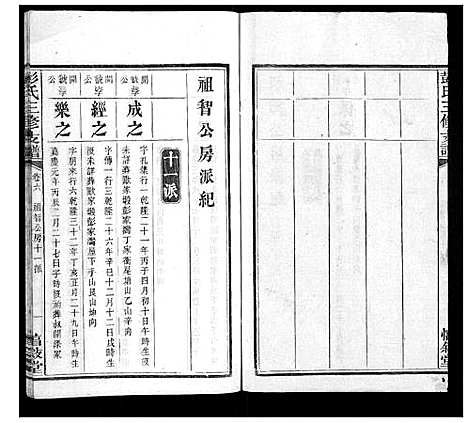 彭氏三修支譜
祖智公房派紀
十一派
開號學公
成之
字孔集行一乾隆二十一年丙子四月初十日午時生
未詳葬歐家塅彭家灣丁家衝尾塘山乙山辛向
開號學公
經之
字傳一行三乾隆二十六年辛巳十二月十二日戌時生
未詳葬歐家塅彭家灣屋下山艮山坤向
開號學公
樂之
字朋來行六乾隆三十二年丁亥正月二十九日午時生
嘉慶元年丙辰二月二十七日字時
彭氏三修支譜
卷六
祖智公房十一派
一